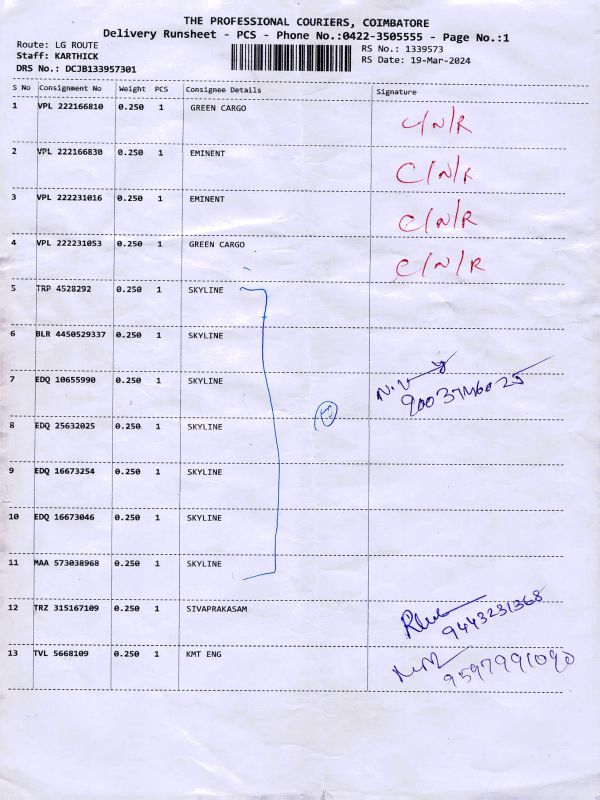 THE PROFESSIONAL COURIERS, COIMBATORE
Delivery Runsheet - PCS - Phone No.:0422-3505555 - Page No.:1
Route: LG ROUTE RS No.: 1339573
Staff: KARTHICK RS Date: 19-Mar-2024
DRS No.: DCJB133957301
S No Consignment No Weight PCS Consignee Details Signature
1 VPL 222166810 0.250 1 GREEN CARGO C/N/R
2 VPL 222166830 0.250 1 EMINENT C/N/R
3 VPL 222231016 0.250 1 EMINENT C/N/R
4 VPL 222231053 0.250 1 GREEN CARGO C/N/R
5 TRP 4528292 0.250 1 SKYLINE
6 BLR 4450529337 0.250 1 SKYLINE
7 EDQ 10655990 0.250 1 SKYLINE
8 EDQ 25632025 0.250 1 SKYLINE
9 EDQ 16673254 0.250 1 SKYLINE
10 EDQ 16673046 0.250 1 SKYLINE
11 MAA 573038968 0.250 1 SKYLINE
12 TRZ 315167109 0.250 1 SIVAPRAKASAM 9443231368
13 TVL 5668109 0.250 1 KMT ENG 9597991090